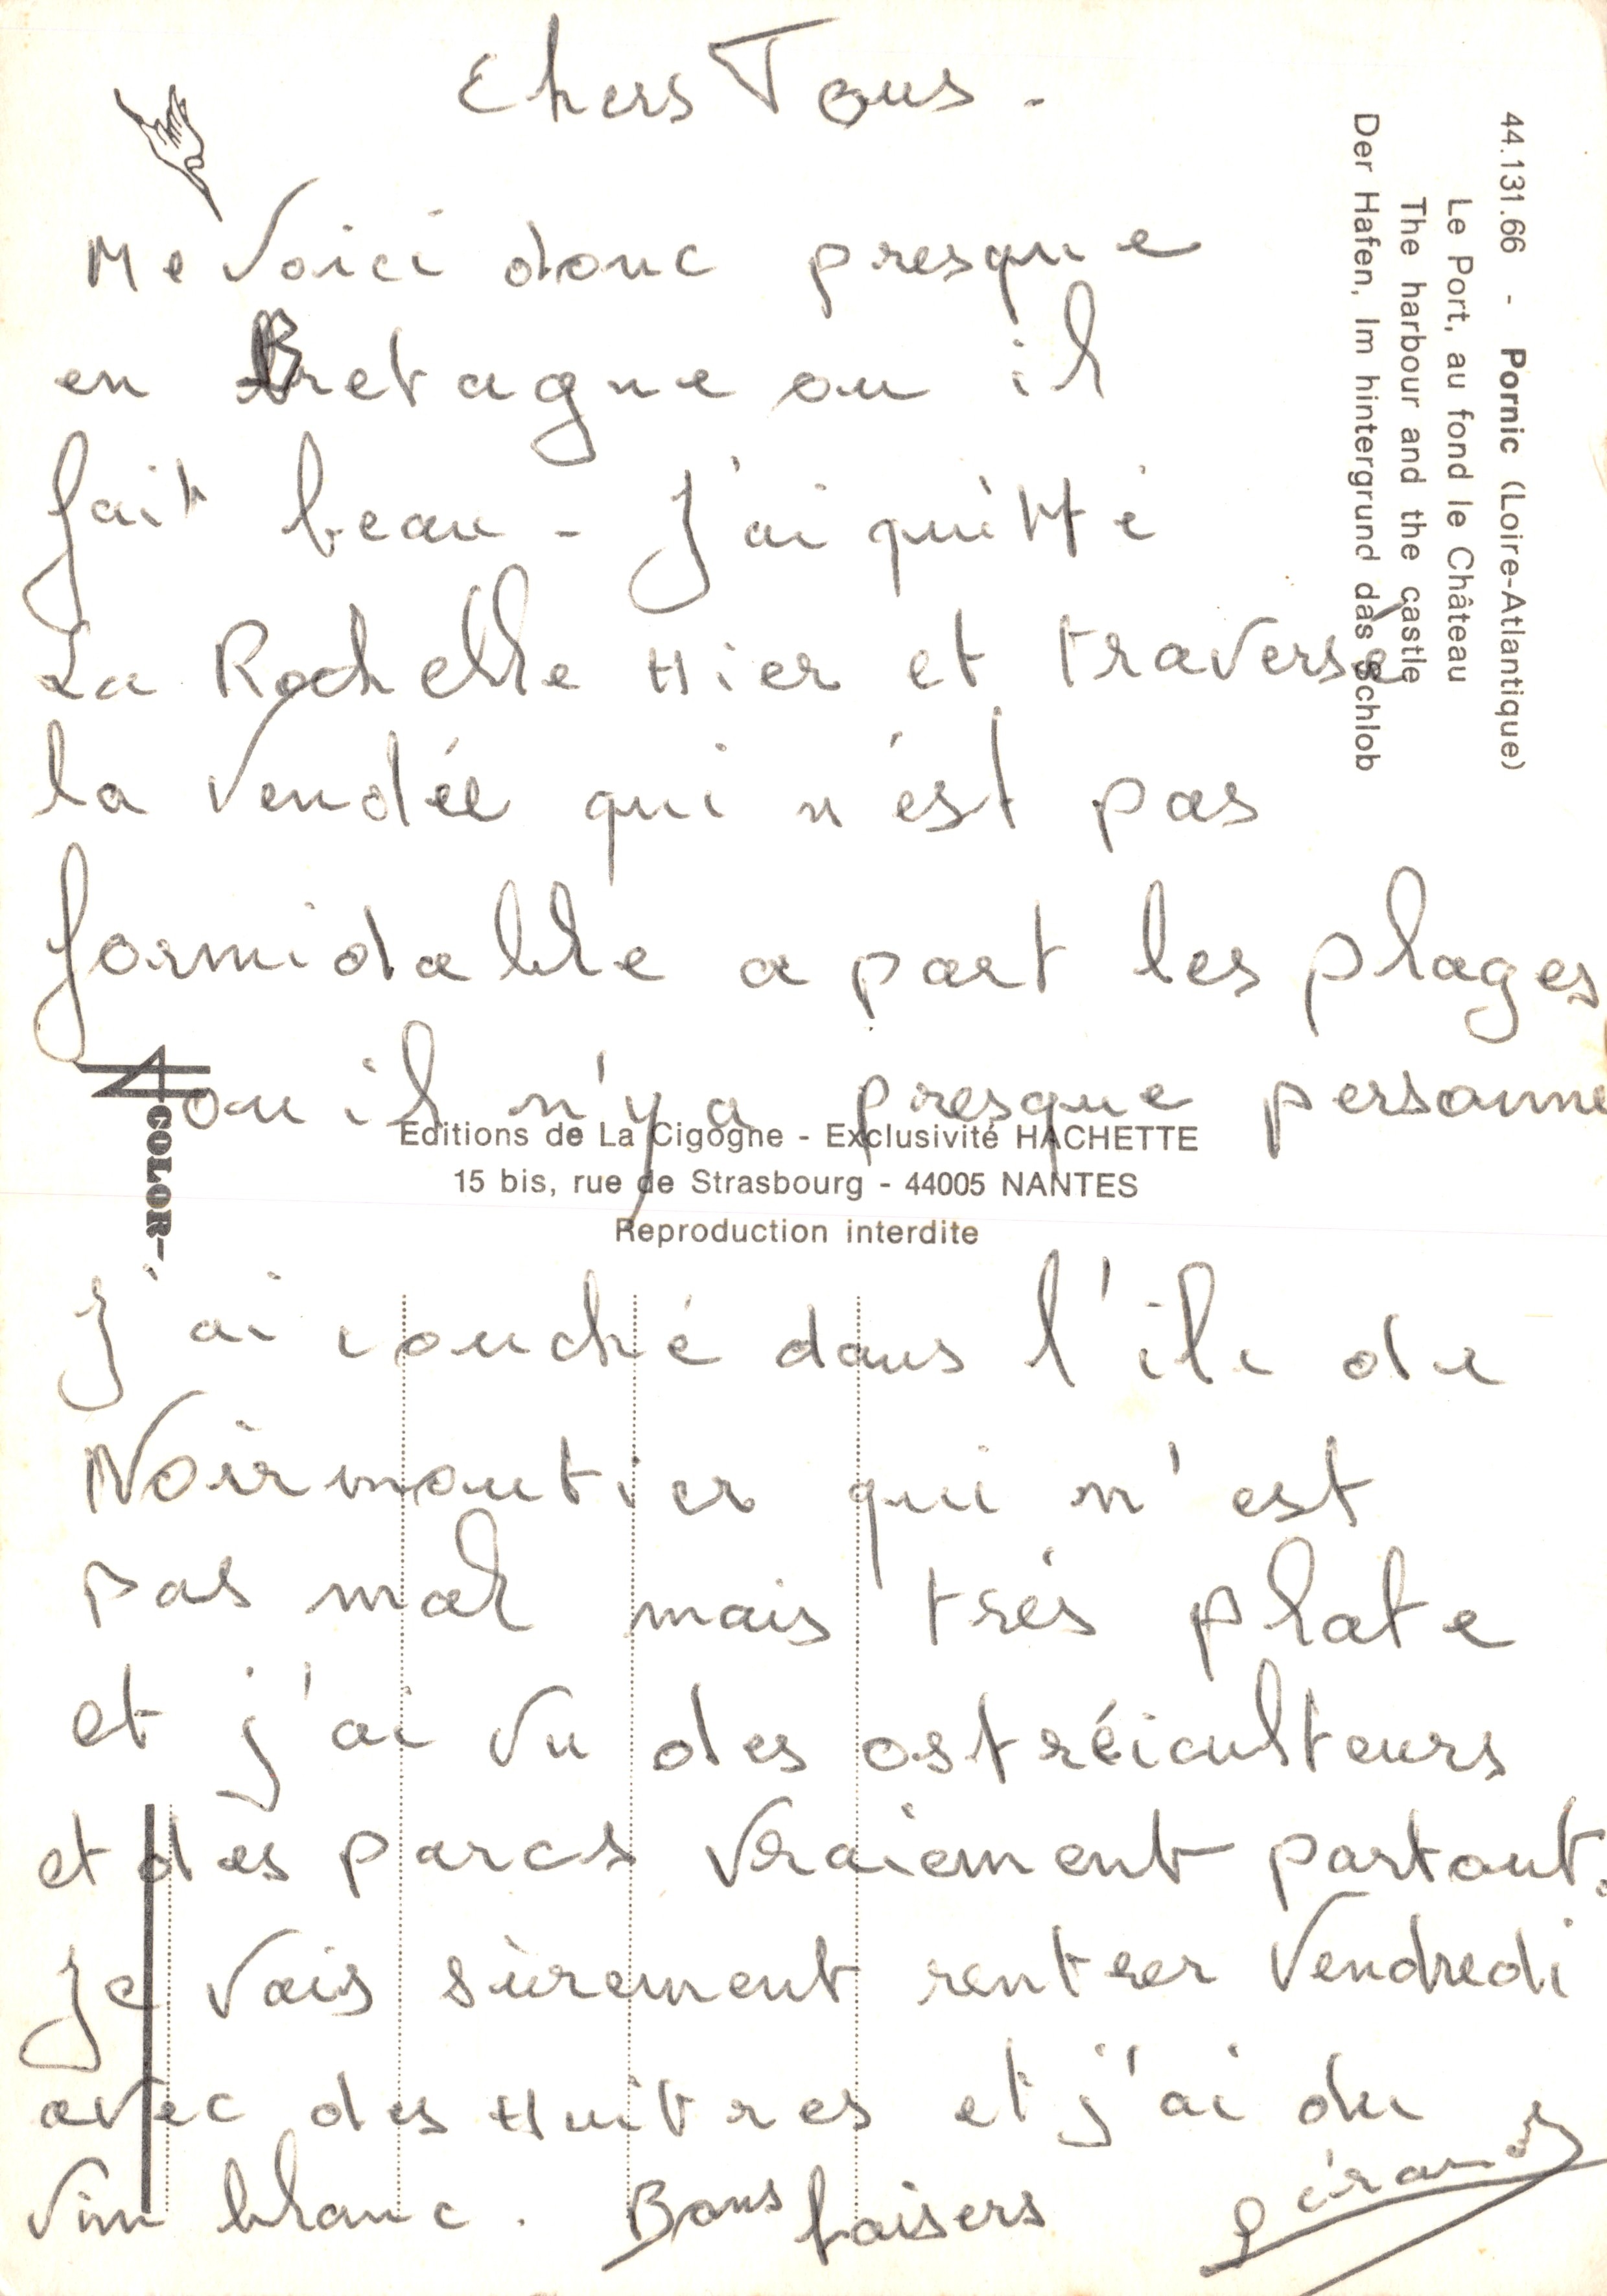 Chers Tous.
Me Voici donc presque
en Bretagne ou il
fait beau - J'ai quitté
La Rochelle Hier et traversé
la Vendée qui n'est pas
formidable a part les plages
ou il n'y a presque personne
J'ai couché dans l'ile de
Noirmoutier qui n'est
pas mal mais trés plate
et j'ai vu des ostréiculteurs
et des parcs vraiement partout.
Je vais sùrement rentrer Vendredi
avec des Huitres et j'ai du
vin blanc. Bons baisers
gérard
44.131.66 - Pornic (Loire-Atlantique)
Le Port, au fond le Château
The harbour and the castle
Der Hafen, Im hintergrund das Schlob
COLOR
Editions de La Cigogne - Exclusivité HACHETTE
15 bis, rue de Strasbourg - 44005 NANTES
Reproduction interdite